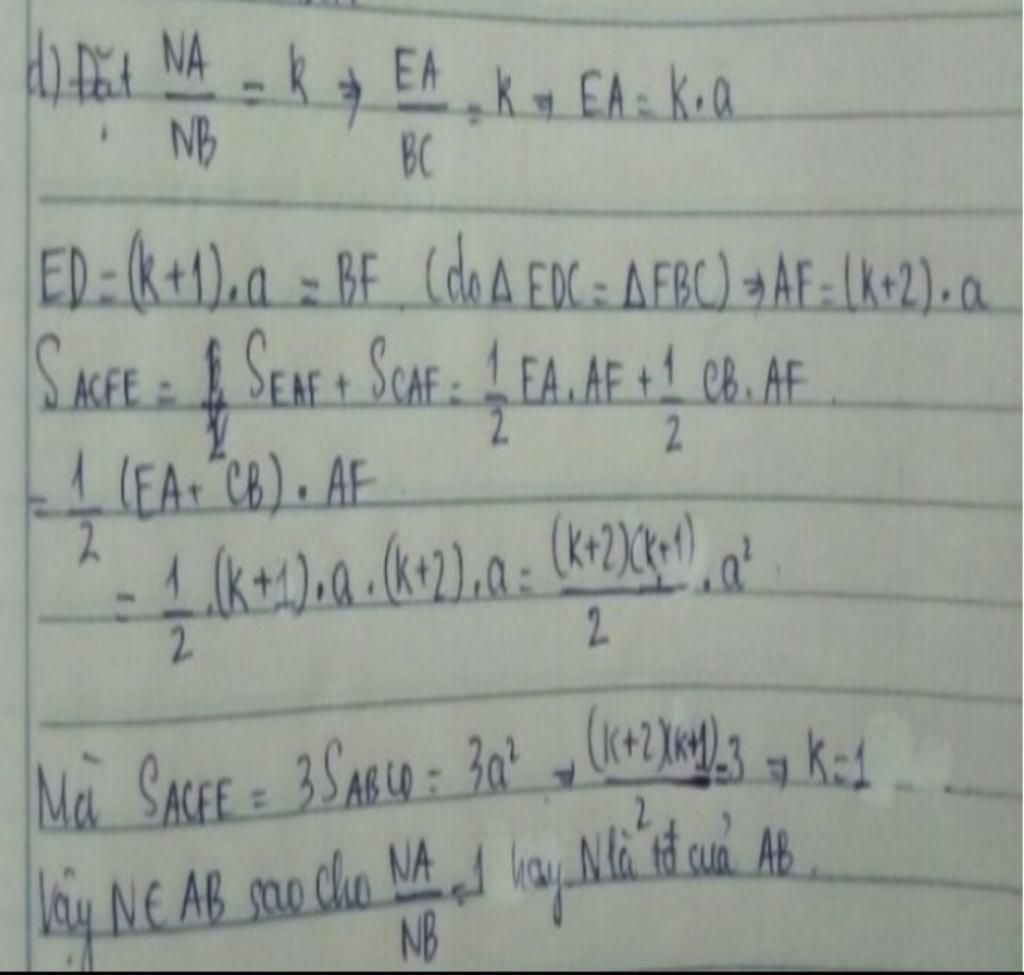 d) Đặt NA/NB = k => EA/BC = k => EA = k.a
ED = (k+1).a = BF (do Δ EDC = Δ FBC) => AF = (k+2).a
S ACFE = S EAF + S CAF = 1/2 EA.AF + 1/2 CB.AF
= 1/2 (EA + CB).AF
= 1/2 .(k+1).a.(k+2).a = (k+2)(k+1)/2 .a²
Mà S ACFE = 3S ABCD = 3a² => (k+2)(k+1)/2 = 3 => k=1
Vậy N∈AB sao cho NA/NB = 1 hay N là tđ của AB.